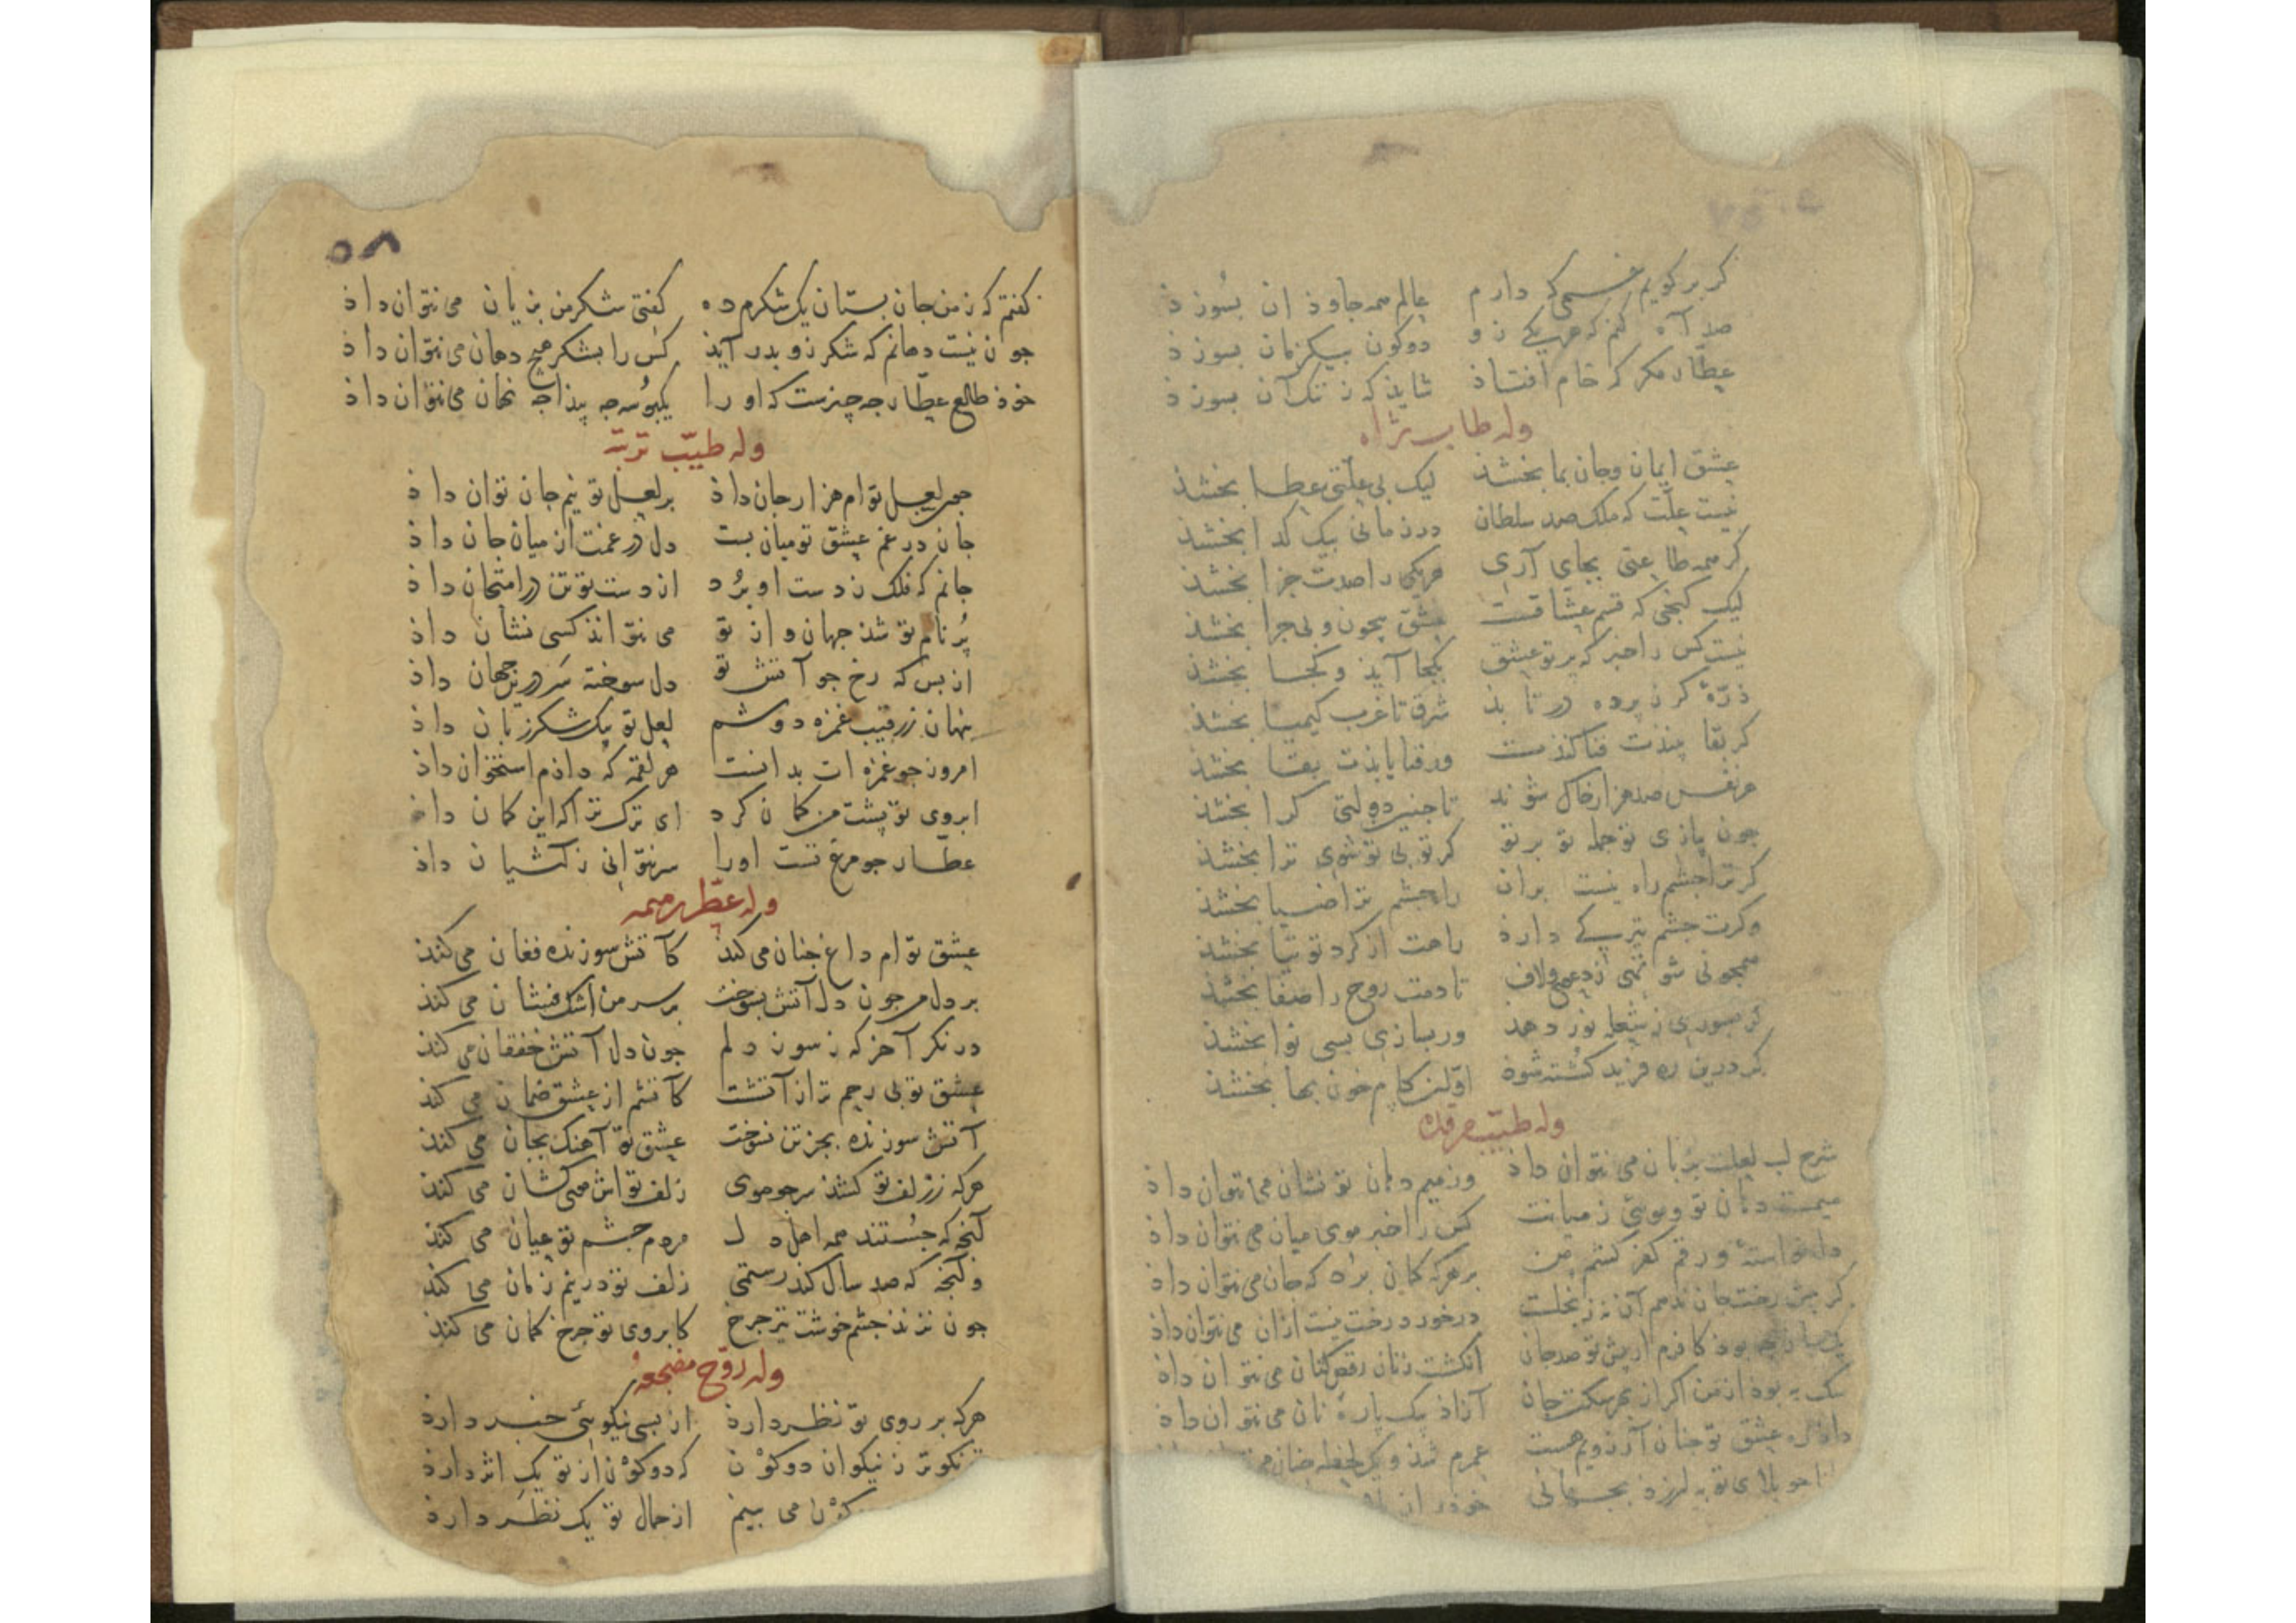 گر برگویم غمی که دارم عالم همه جاوذان بسوزذ
صد آه کنم که هر یکی زو دو کون بیکزمان بسوزذ
عطّار مکر که خام افتاذ شایذ که ز ننک آن بسوزذ
وله طاب ثراه
عشق ایمان و جان بما بخشذ لیک بی علّتی عطا بخشذ
نیست علّت که ملک صد سلطان در زمانی بیک کدا بخشذ
کر همه طاعتی بجای آری هر یکی را صدت جزا بخشذ
لیک کنجی که قسم عشّاقست عشق بیچون و بی جرا بخشذ
نیست کس را خبر که پرتو عشق بکجا آیذ و کجا بخشذ
ذرّهٔ کر ز پرده در تابذ شرق تا غرب کیمیا بخشذ
کر بقا بینذت فنا کنذت ور فنا یابذت بقا بخشذ
هر نفس صد هزار خاک شوند تا جنین دولتی کرا بخشذ
جون بازی تو جمله تو برتو کر تو بی تو شوی ترا بخشذ
کر ترا جشم راه نیست بران راه جشم ترا ضیا بخشذ
وکرت جشم تیریی دارذ راهت از کرد توتیا بخشذ
همجو نی شو تهی ز دعوی و لاف تا دمت روح را صفا بخشذ
کر بسوزی ز شعله نور دهذ ور بسازی بسی نوا بخشذ
کر درین ره فرید کشته شوذ اوّلین کام خون بها بخشذ
وله طیّب مرقده
شرح لب لعلت بزبان می نتوان داذ وز میم دهان تو نشان می نتوان داذ
میمست دهان تو و موئی ز میانت کس را خبر موی میان می نتوان داذ
دل خواستهٔ و رقم کفر کشم من بر هرکه کمان برذ که جان می نتوان داذ
کر بیش رخت جان ندهم آن نه ز بخلست در خورد رخت نیست ازان می نتوان داذ
یک جان جه بوذ کافرم ار بیش تو صد جان انکشت زنان رقص کنان می نتوان داذ
سک به بوذ از من اکر از بهر سکت جان آزاذ بیک پارهٔ نان می نتوان داذ
داذ ره عشق تو جنان آرزوم هست عمرم شذ و یک لحظه جنان
جو بلای تو به لرزذ بجهانی خوذ را ز
۵۸
کفتم که ز من جان بستان یک شکرم ده کفتی شکر من بزیان می نتوان داذ
جون نیست دهانم که شکر زو بدر آیذ کس را بشکر هیج دهان می نتوان داذ
خوذ طالع عطّار جه چیزست که او را یکبوسه جه پیذا جه نهان می نتوان داذ
وله طیّب تربته
جون لعل توام هزار جان داذ بر لعل تو نیم جان توان داذ
جان در غم عشق تو میان بست دل در غمت از میان جان داذ
جانم که فلک ز دست او بُرد از دست تو تن در امتحان داذ
پُر نام تو شذ جهان و از تو می نتوانذ کسی نشان داذ
از بس که رخ جو آتش تو دل سوخته سَر درین جهان داذ
پنهان ز رقیب غمزه دوشم لعل تو یک شکر زبان داذ
امروز جو غمزه ات بدانست هر لقمه که داذم استخوان داذ
ابروی تو پشت من کمان کرد ای ترک ترا که این کمان داذ
عطّار جو مرغ تست او را سر نتوانی ز آشیان داذ
وله عطّر رمسه
عشق توام داغ جنان می کنذ کآتش سوزنده فغان می کنذ
بر دل من جون دل آتش بسوخت بر سر من اشک فشان می کنذ
در نکر آخر که ز سوز دلم جون دل آتش خفقان می کنذ
عشق تو بی رحم تر از آتشست کآتشم از عشق ضمان می کنذ
آتش سوزنده بجز تن نسوخت عشق تو آهنک بجان می کنذ
هرکه ز زلف تو کشذ سر جو موی زلف تواش موی کشان می کنذ
آنجه که جُستند همه اهل دل مردم جشم تو عیان می کنذ
وآنجه که صد سال کند رستمی زلف تو در نیم زمان می کنذ
جون نزنذ جشم خوشت تیر جرخ کابروی تو جرخ کمان می کنذ
وله روّح مضجعه
هرکه بر روی تو نظر دارذ از بسی نیکوئی خبر دارذ
نکوتر ز نیکوان دو کَوْن که دو کَوْن از تو یک اثر دارذ
کَوْن می بینم از جمال تو یک نظَر دارذ